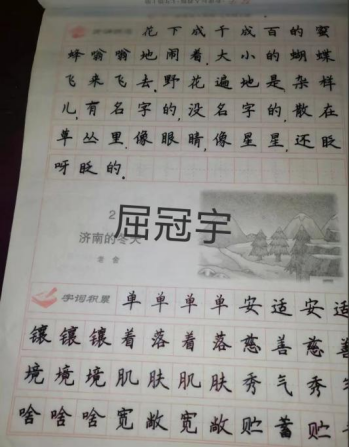 花下成千成百的蜜
蜂嗡嗡地闹着,大小的蝴蝶
飞来飞去.野花遍地是:杂样
儿,有名字的,没名字的,散在
草丛里,像眼睛,像星星,还眨
呀眨的.
2
济南的冬天
老舍
屈冠宇
字词积累 单单单单安适安适
镶镶镶着落着落慈善慈
境境境肌肤肌肤秀气秀
啥啥啥宽敞宽敞贮蓄贮